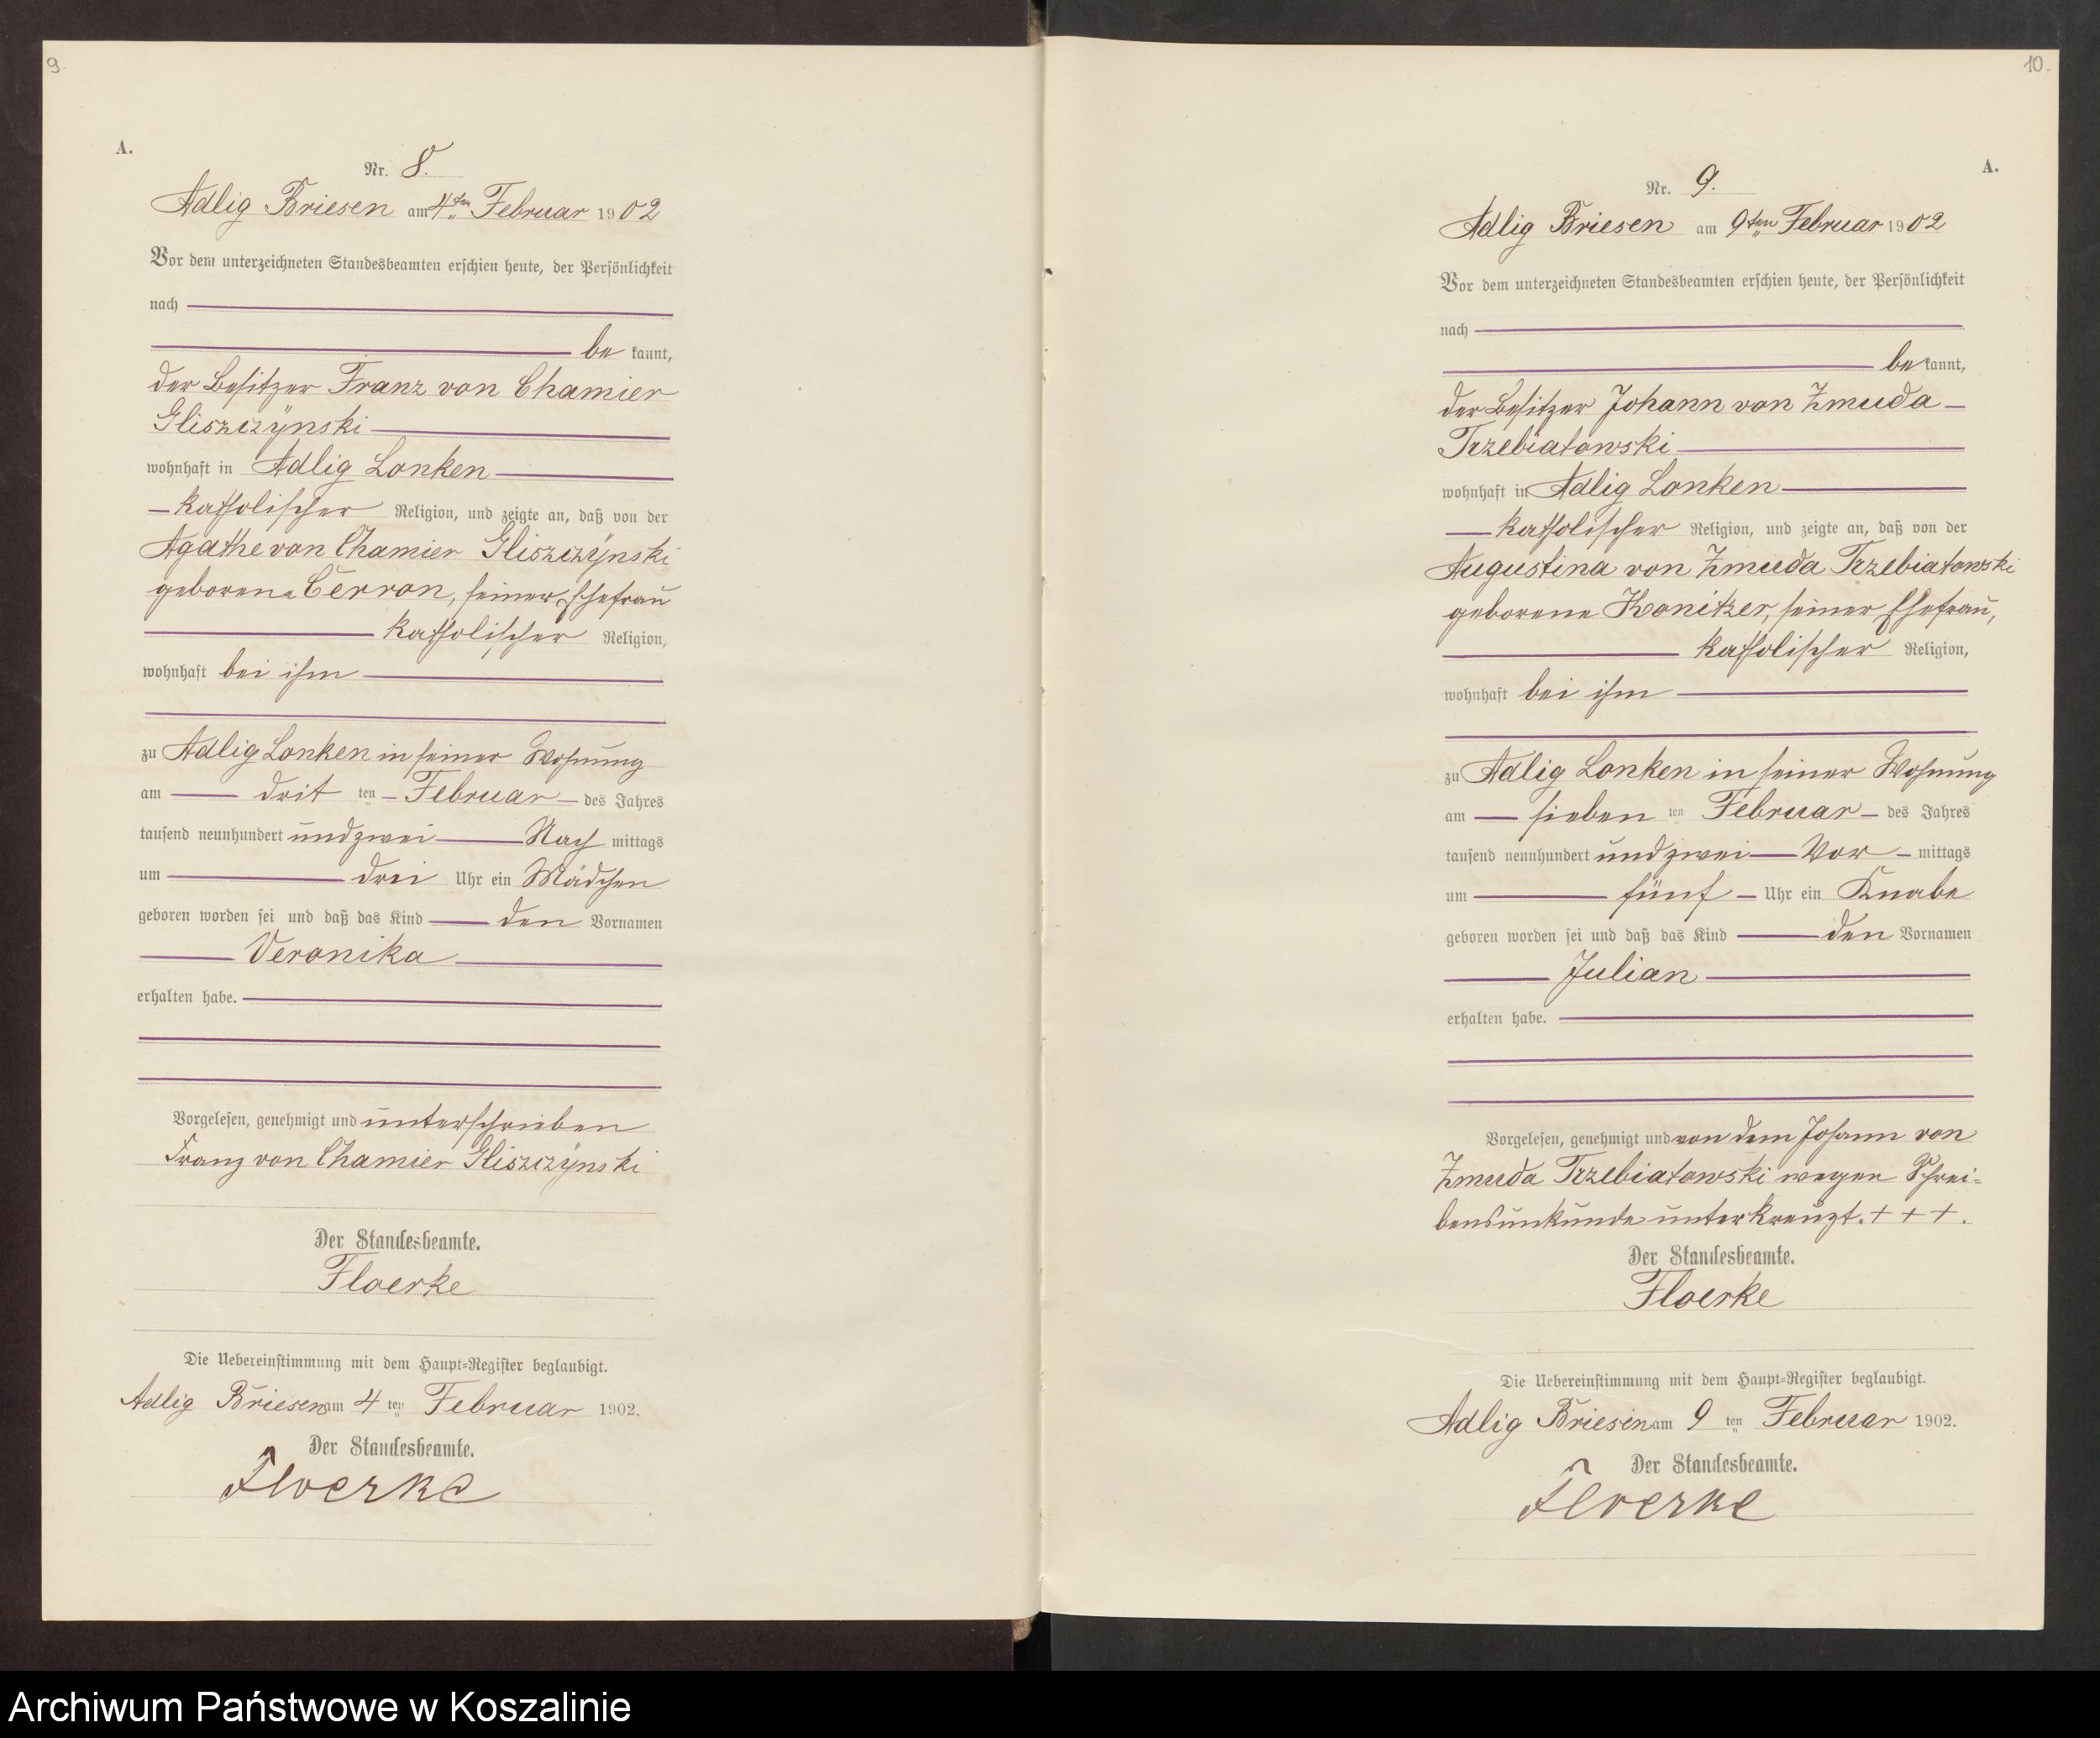 9.
A.
Nr. 8.
Adlig Briesen am 4ten Februar 1902
Vor dem unterzeichneten Standesbeamten erschien heute, der Persönlichkeit
nach
be kannt,
der Besitzer Franz von Chamier
Gliszczynski
wohnhaft in Adlig Lonken
katholischer Religion, und zeigte an, daß von der
Agathe von Chamier Gliszczynski
geborene Cerron, seiner Ehefrau
katholischer Religion,
wohnhaft bei ihm
zu Adlig Lonken in seiner Wohnung
am drit ten Februar des Jahres
tausend neunhundert und zwei Nach mittags
um drei Uhr ein Mädchen
geboren worden sei und daß das Kind den Vornamen
Veronika
erhalten habe.
Vorgelesen, genehmigt und unterschrieben
Franz von Chamier Gliszczynski
Der Standesbeamte.
Floerke
Die Uebereinstimmung mit dem Haupt-Register beglaubigt.
Adlig Briesen am 4 ten Februar 1902.
Der Standesbeamte.
Floerke
10.
A.
Nr. 9.
Adlig Briesen am 9ten Februar 1902
Vor dem unterzeichneten Standesbeamten erschien heute, der Persönlichkeit
nach
be kannt,
der Besitzer Johann von Zmuda-
Trzebiatowski
wohnhaft in Adlig Lonken
katholischer Religion, und zeigte an, daß von der
Augustina von Zmuda Trzebiatowski
geborene Konitzer, seiner Ehefrau,
katholischer Religion,
wohnhaft bei ihm
zu Adlig Lonken in seiner Wohnung
am sieben ten Februar des Jahres
tausend neunhundert und zwei Vor mittags
um fünf Uhr ein Knabe
geboren worden sei und daß das Kind den Vornamen
Julian
erhalten habe.
Vorgelesen, genehmigt und von dem Johann von
Zmuda Trzebiatowski wegen Schrei-
bensunkunde unterkreuzt. + + +.
Der Standesbeamte.
Floerke
Die Uebereinstimmung mit dem Haupt-Register beglaubigt.
Adlig Briesen am 9 ten Februar 1902.
Der Standesbeamte.
Floerke
Archiwum Państwowe w Koszalinie